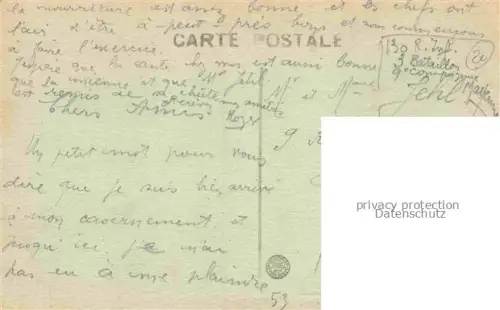 la nourriture est assez bonne et les chefs ont
l'air d'être à peut près bons et nous commençons
à faire l'exercice.
CARTE POSTALE
J'espère que la santé chez vous est aussi bonne
que la mienne et que Mr Jehl
est remis de sa chute mes amitiés
Roger
130 R. Inf.
3 Bataillon
9e Compagnie
20
Mr et Mme
Jehl
9 R
Chers Amis
Un petit mot pour vous
dire que je suis bien arrivé
à mon casernement et
jusqu'ici je n'ai
pas eu à me plaindre
53
privacy protection
Datenschutz